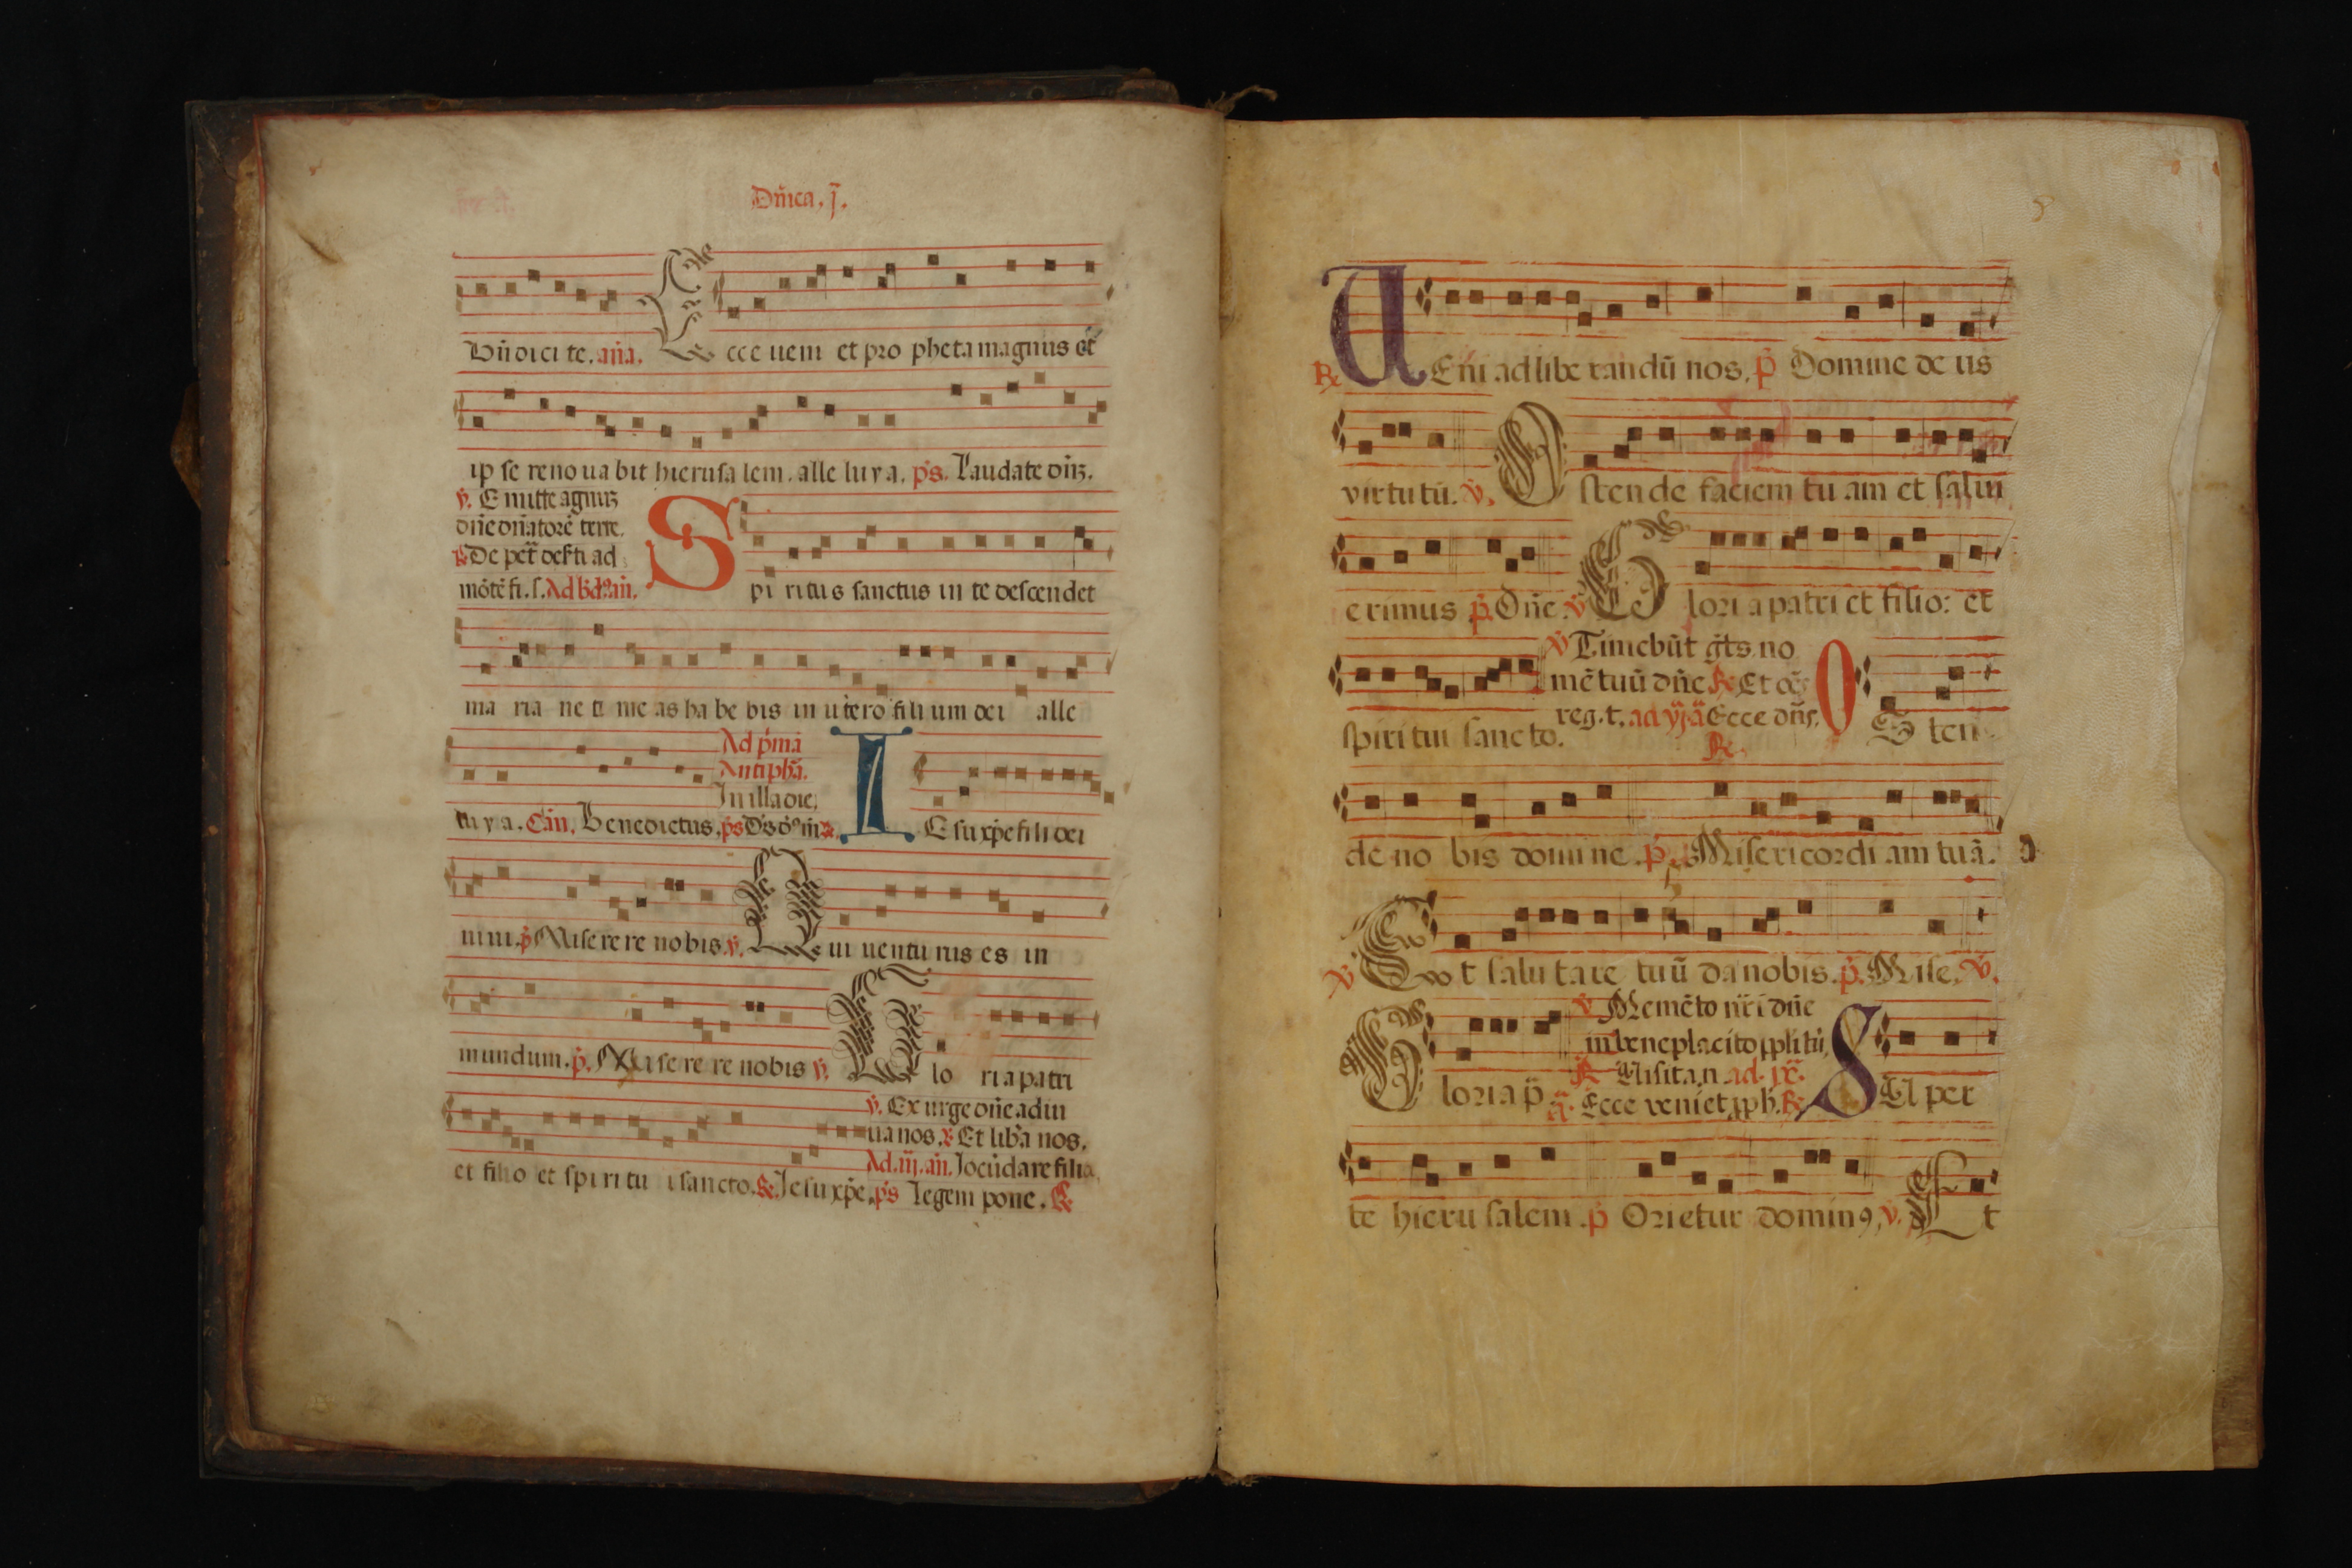 Dn̄ica. j.
Bn̄dici te. an̄a. Ecce ueni et pro pheta magnus et
ip se reno ua bit hierusa lem. alle luya. ps. Laudate
ꝟ. Emitte agnuꝫ
dn̄e dn̄atorē terre.
De pet̄ deserti ad
mōtē fi. s. Ad
Spi ritus sanctus in te descendet
ma ria ne ti me as ha be bis in utero fili um dei alle
luya. Cān. Benedictus. ps
Ad pͥmā
Antiphā.
In illa die.
IEsu xp̄e fili dei
uiui. p̄ Miserere re nobis. ꝟ. Qui uentu rus es in
mundum. p̄. Mi se re re nobis ꝟ. Glo ria patri
et filio et spi ri tu i sancto. ℟. Iesu xp̄e. ps Legem pone. ℟
ꝟ. Exurge dn̄e adiu
ua nos. ℟ Et liba nos.
Ad. iij. an̄. Jocūdare filia
5
℟ UEni ad libe randū nos. p̄ Domine de us
virtutū. ꝟ. Ostende faciem tu am et salui
erimus p̄. Dn̄e. ꝟ Gloria patri et filio: et
spiri tui sancto.
ꝟ Timebūt gt̄s no
mē tuū dn̄e ℟ Et oēs
reg. t. ad vj ā Ecce dn̄s.
℟.
OSten
de no bis domine. p̄. Misericordi am tuā.
ꝟ Et salutare tuū da nobis. p̄. Mise. ꝟ.
Gloria p̄
ꝟ Memēto nr̄i dn̄e
in beneplacito pplī tui
℟ Uisita n. ad. ix.
ā. Ecce veniet pph. ℟
SUper
te hierusalem. p̄ Orietur dominꝰ, ꝟ. Et